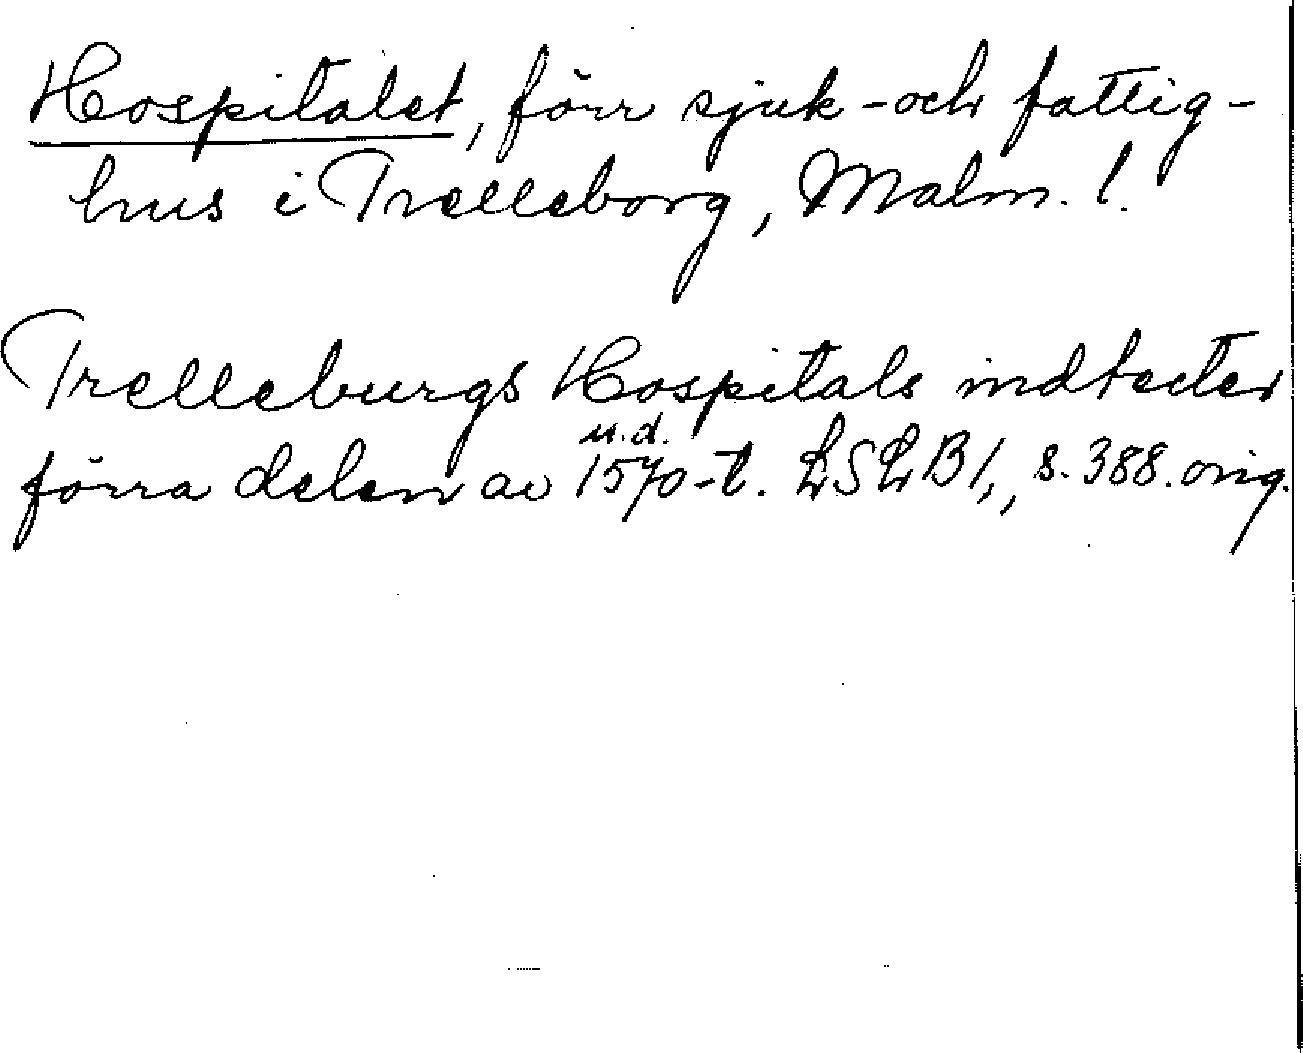 Hospitalet, förr sjuk-och fattig-
hus i Trelleborg, Malm. l.
Trelleburgs Hospitals indtecter
u.d.
förra delen av 1570-t. LSLB1, s. 388. orig.